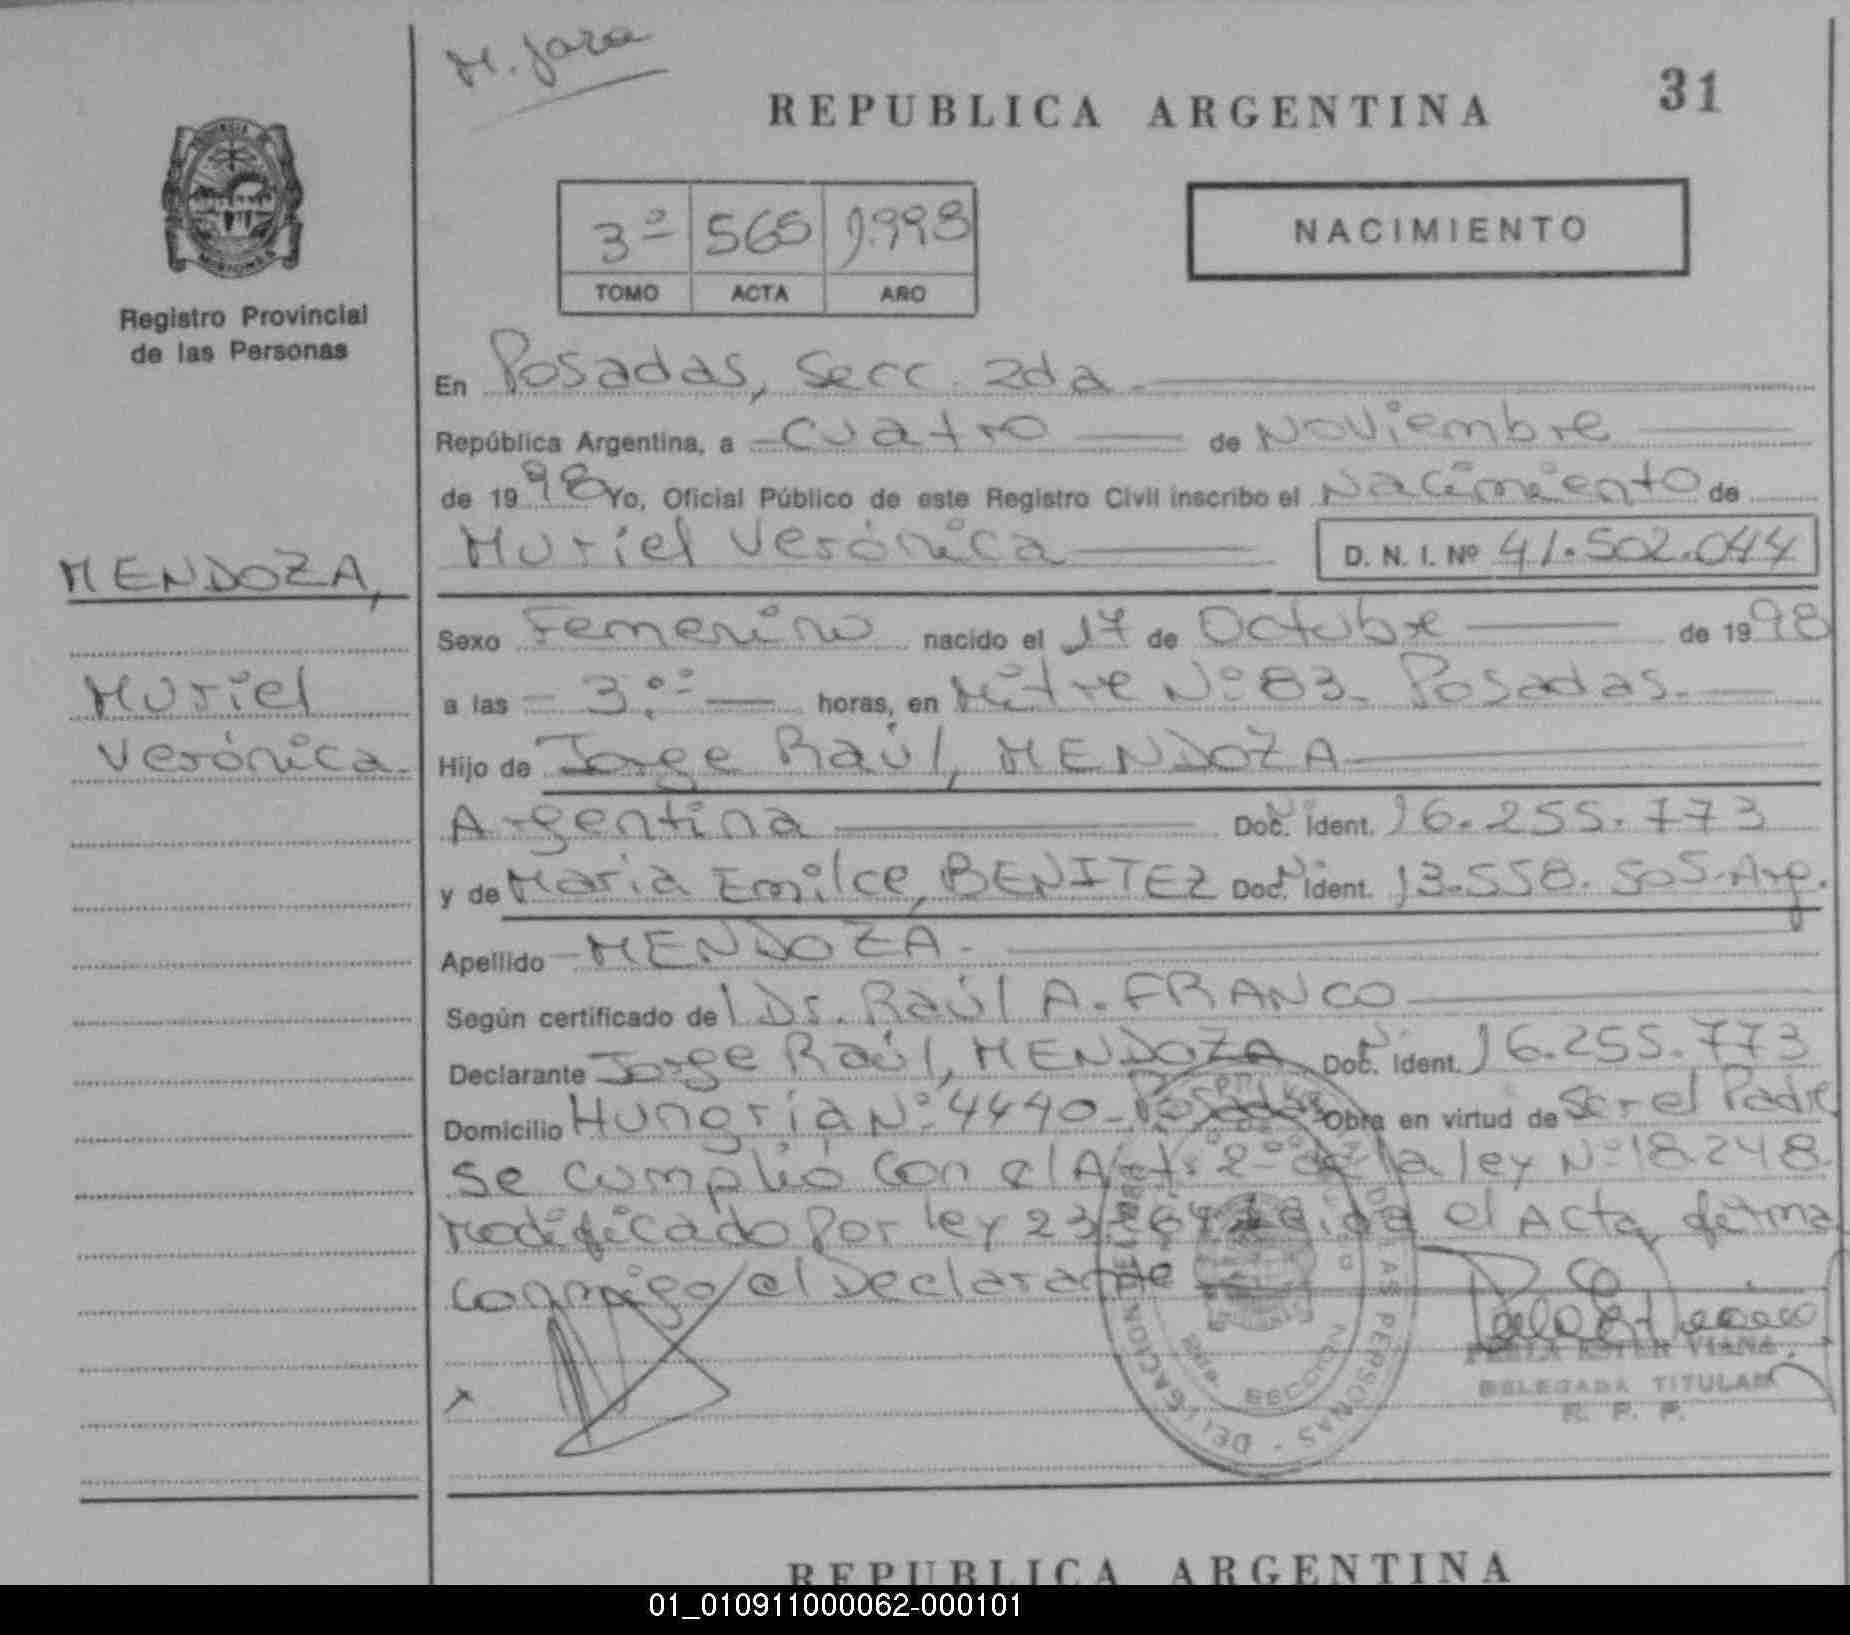 M. Jara
31
REPUBLICA ARGENTINA
3º 565 1.998
TOMO ACTA AÑO
NACIMIENTO
MISIONES
Registro Provincial
de las Personas
MENDOZA,
Muriel
Verónica.
En Posadas, Secc. 2da.
República Argentina, a cuatro de Noviembre
de 1998 Yo, Oficial Público de este Registro Civil inscribo el Nacimiento de
Muriel Verónica D. N. I. Nº 41.502.044
Sexo Femenino nacido el 17 de Octubre de 1998
a las 3.ºº horas, en Mitre Nº 83. Posadas.
Hijo de Jorge Raúl, MENDOZA
Argentina Doc. Ident. 16.255.773
y de María Emilce, BENITEZ Doc. Ident. 13.558.505-Arg.
Apellido MENDOZA.
Según certificado del Dr. Raúl A. FRANCO
Declarante Jorge Raúl, MENDOZA Doc. Ident. 16.255.773
Domicilio Hungría Nº 4440-Posadas Obra en virtud de Ser el Padre
Se cumplió con el Art. 2º de la ley Nº 18.248
modificado Por ley 23. el Acta, firma
conmigo el Declarante
PERLA ESTER VIANA
DELEGADA TITULAR
R. P. P.
DE LAS PERSONAS - DELEGACION
SECCION
REPUBLICA ARGENTINA
01_010911000062-000101